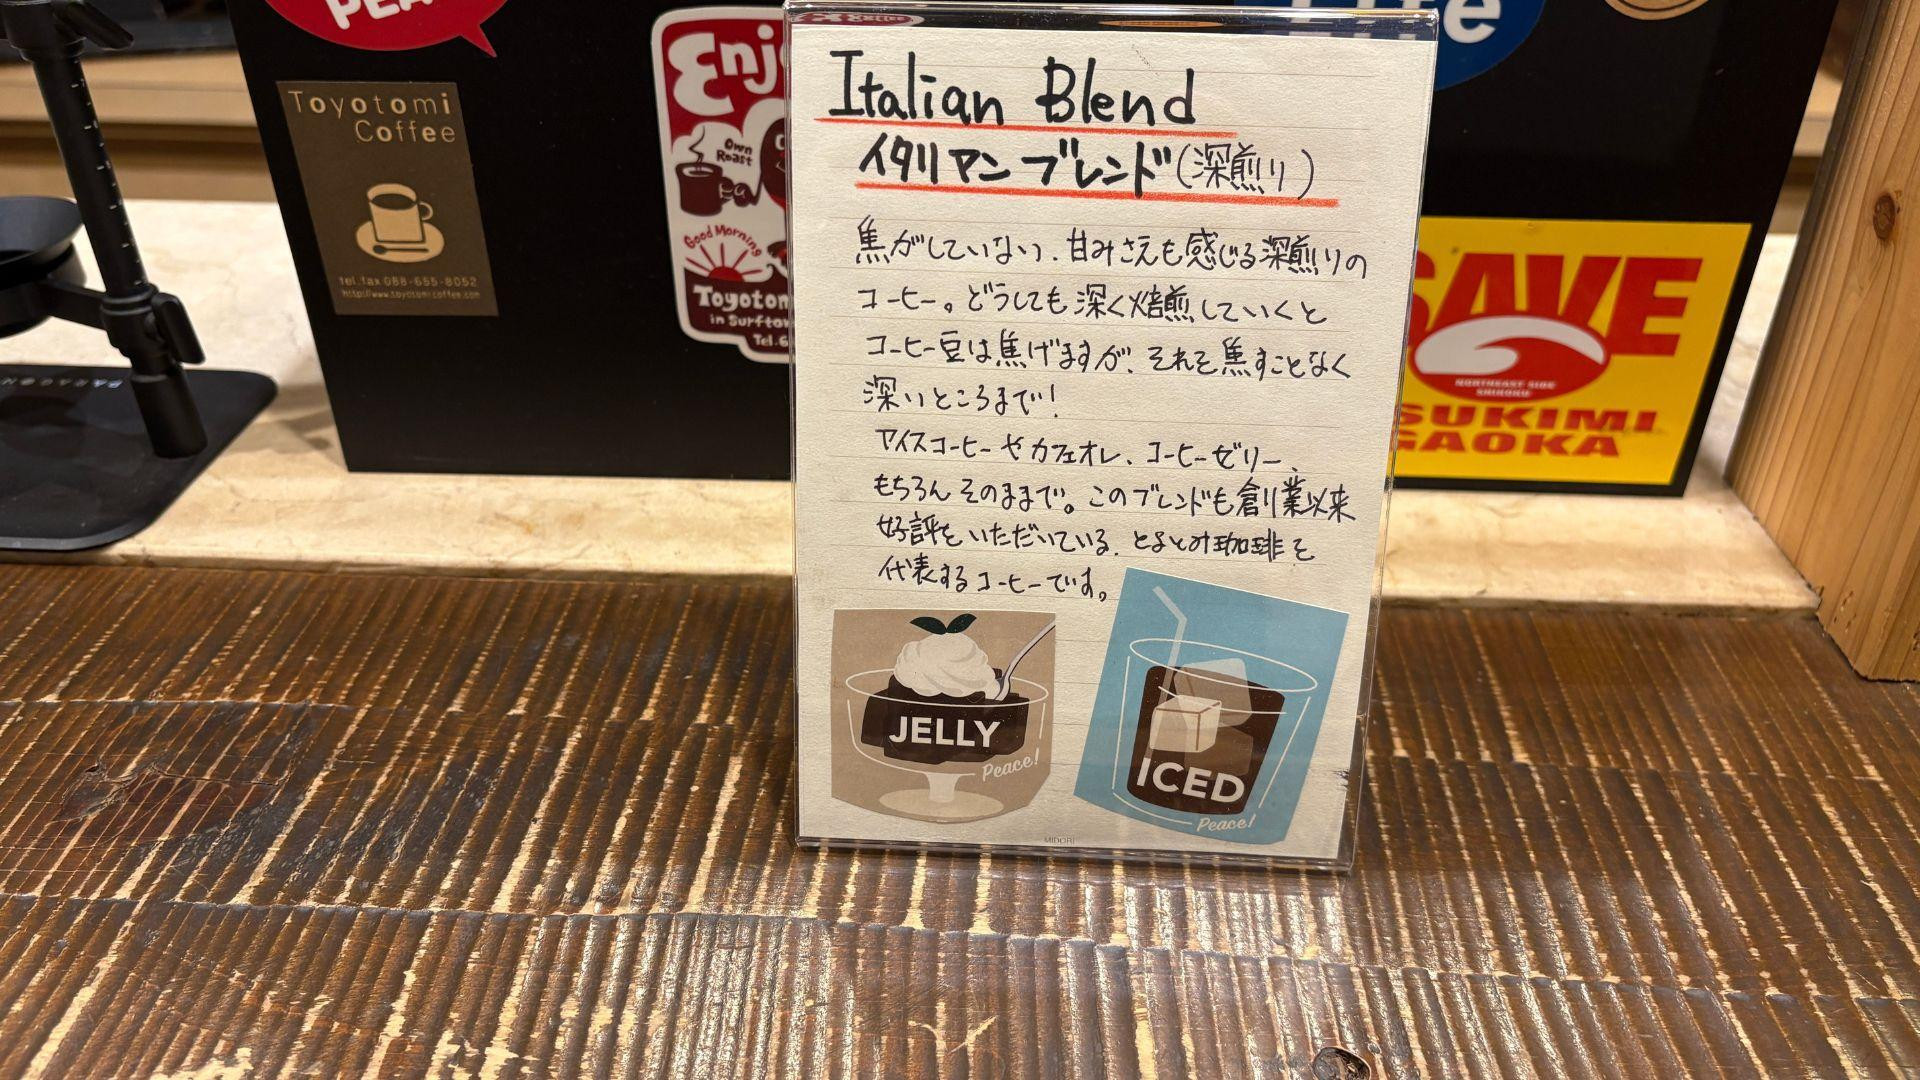 Toyotomi
Coffee
tel.fax 088-655-8052
http://www.toyotomicoffee.com
Own
Roast
Good Morning
in Surftow
Tel.6
Italian Blend
イタリアンブレンド(深煎り)
焦がしていない、甘みさえも感じる深煎りの
コーヒー。どうしても深く焙煎していくと
コーヒー豆は焦げますが、それを焦すことなく
深いところまで!
アイスコーヒーやカフェオレ、コーヒーゼリー、
もちろんそのままで。このブレンドも創業以来
好評をいただいている、とよとみ珈琲を
代表するコーヒーです。
JELLY
Peace!
ICED
Peace!
MIDORI
SAVE
NORTHEAST SIDE
SHIKOKU
SUKIMI
GAOKA
PARAGON